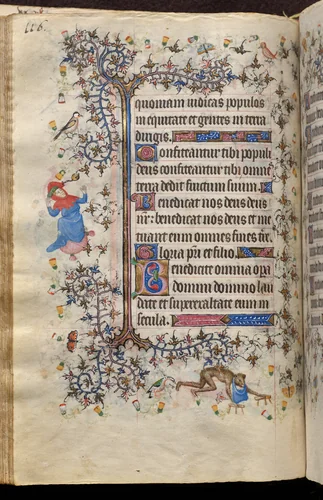 quoniam iudicas populos
in equitate et gentes in terra
dirigis.
Confiteantur tibi populi
deus confiteantur tibi omnes
terra dedit fructum suum.
Benedicat nos deus deus
nr: benedicat nos deus et me
tuant eum omnes fines tre.
Gloria pri et filio.
Benedicite omnia opa
domini domino lau
date et superexaltate eum in
secula.